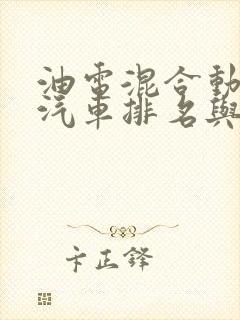 油電混合動
汽車排名與
卞正鋒